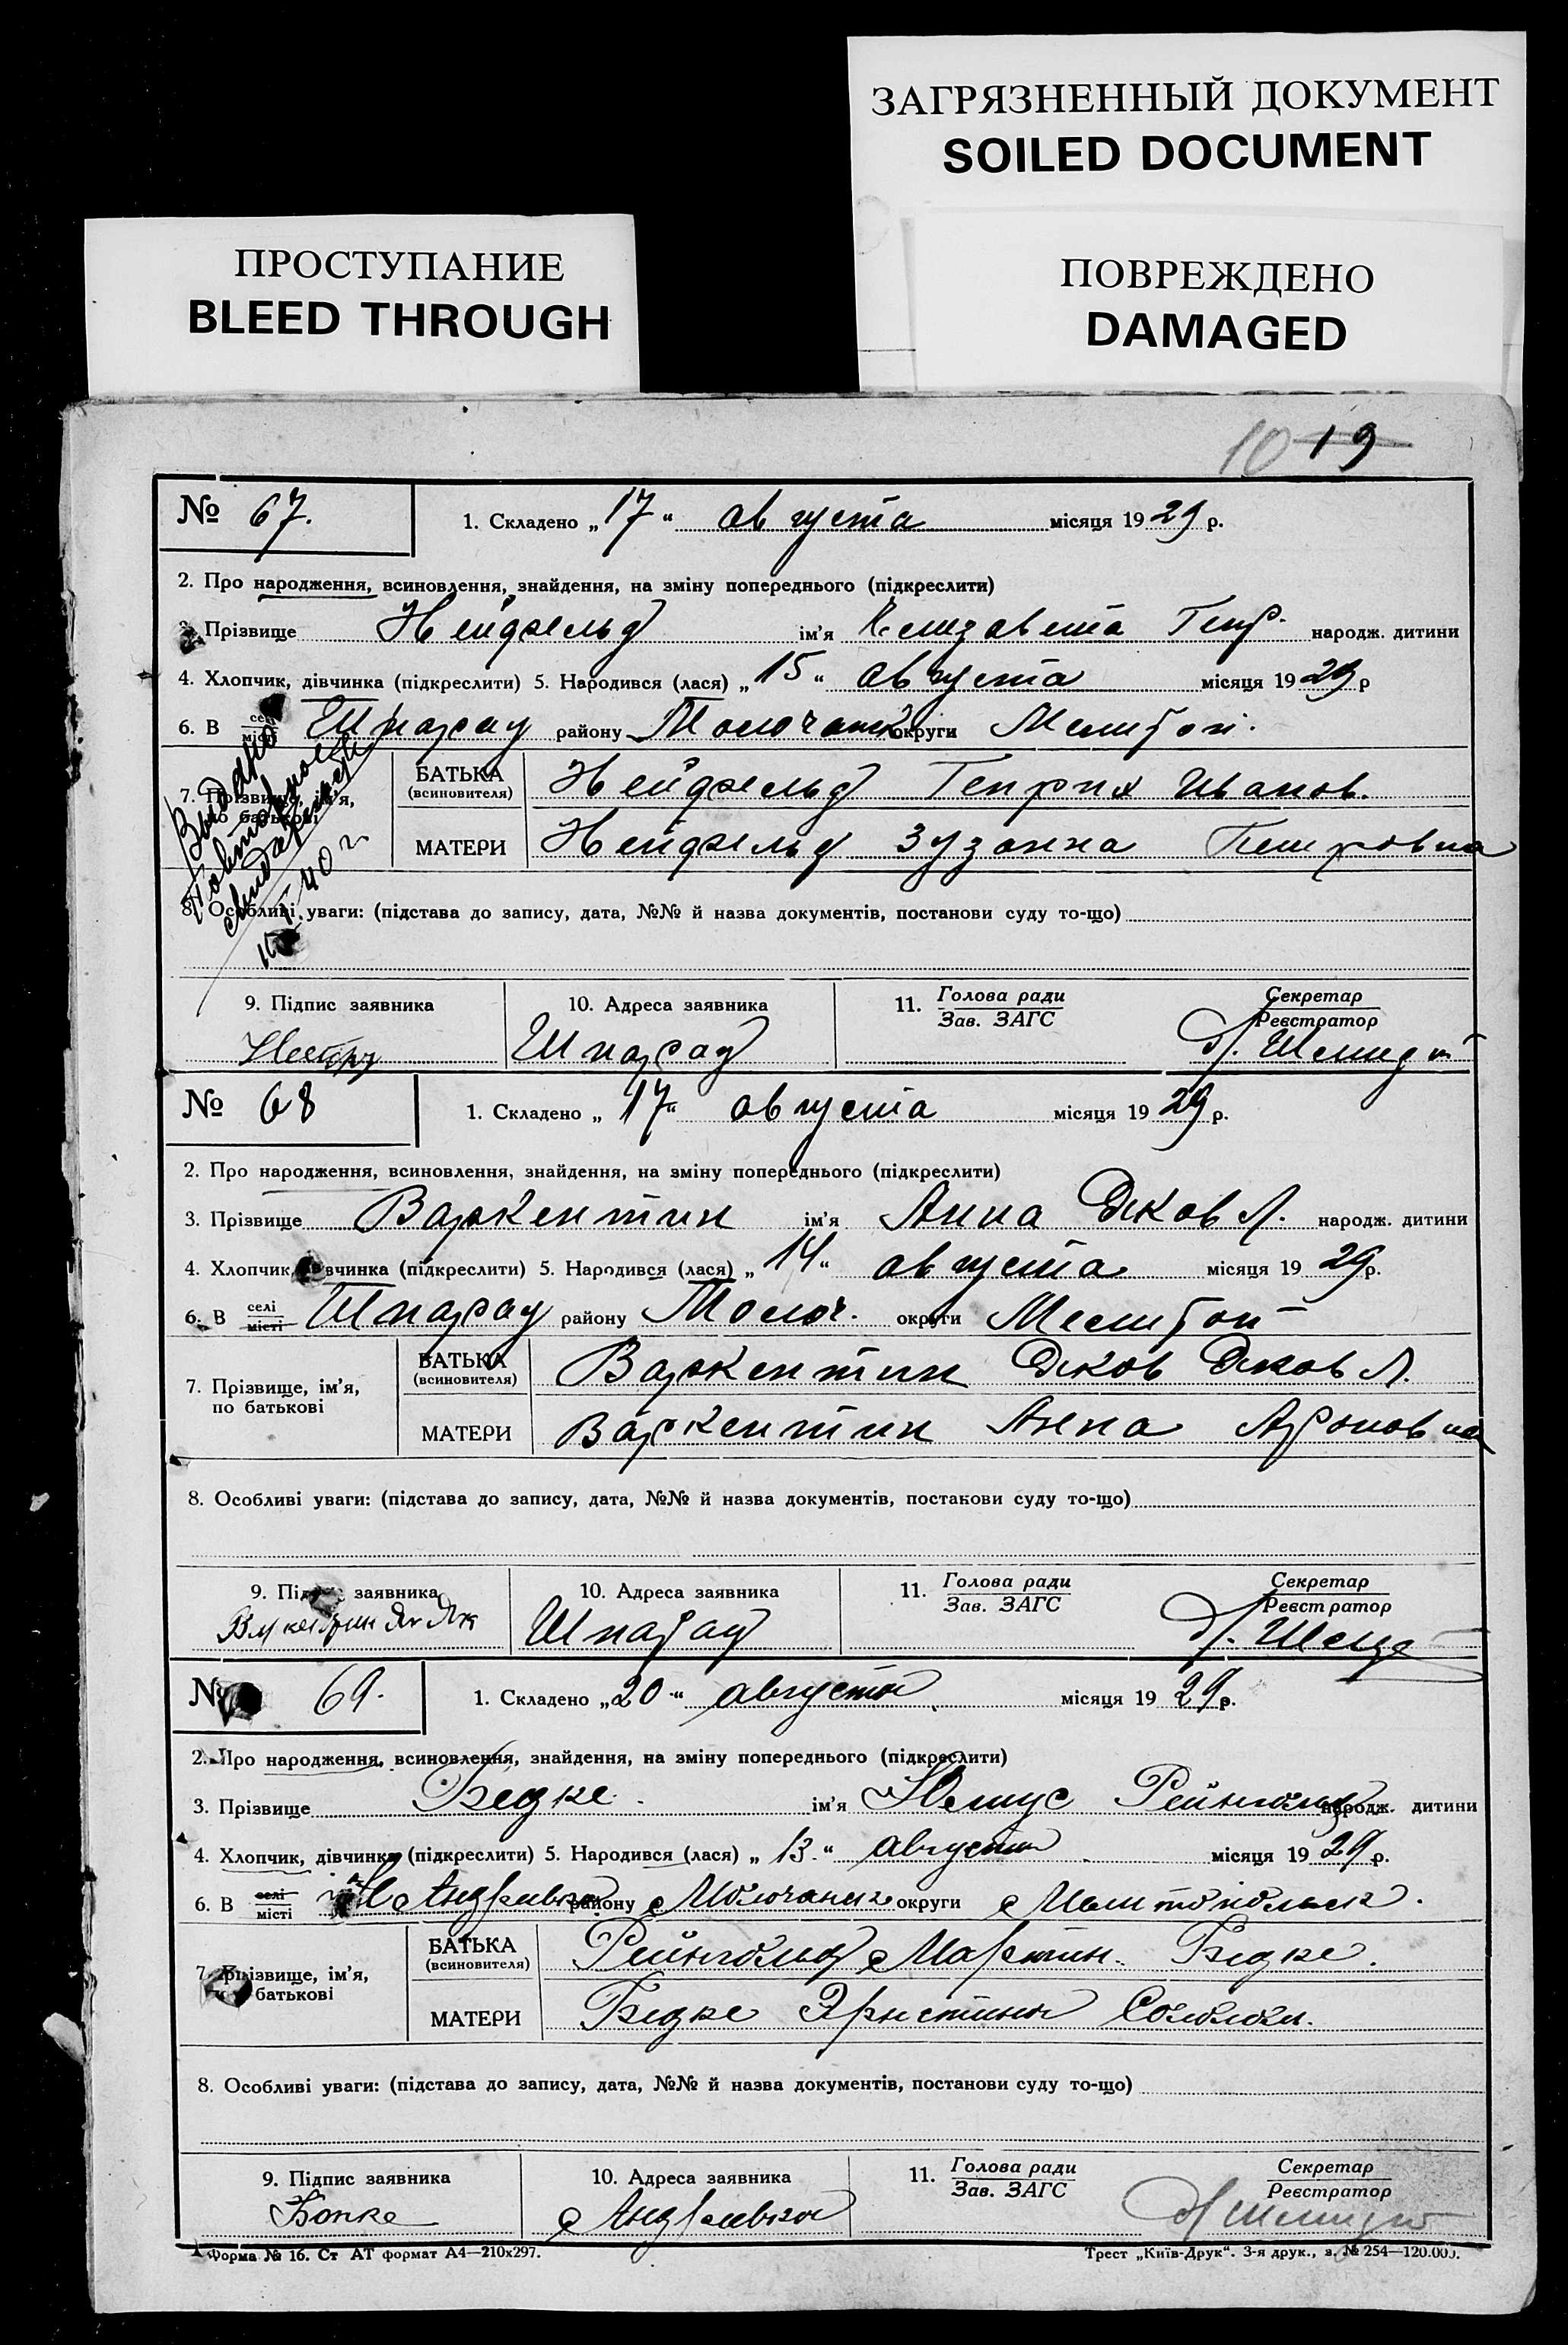 ЗАГРЯЗНЕННЫЙ ДОКУМЕНТ
SOILED DOCUMENT
ПРОСТУПАНИЕ
BLEED THROUGH
ПОВРЕЖДЕНО
DAMAGED
10 19
№ 67. 1. Складено „17“ августа місяця 1929 р.
2. Про народження, всиновлення, знайдення, на зміну попереднього (підкреслити)
Прізвище Нейфельд ім'я Елизавета Генр. народж. дитини
4. Хлопчик, дівчинка (підкреслити) 5. Народився (лася) „15“ августа місяця 1929 р
6. В селі місті Шпарау району Молочанск округи Мелитоп.
7. Прізвище, ім'я, по батькові
БАТЬКА (всиновителя) Нейфельд Генрих Иванов.
МАТЕРИ Нейфельд Зузанна Петровна
Выдано
повторное
свидетел
40 г
8. Особливі уваги: (підстава до запису, дата, №№ й назва документів, постанови суду то-що)
9. Підпис заявника 10. Адреса заявника 11. Голова ради Зав. ЗАГС Секретар Реєстратор
Шпарау
№ 68 1. Складено „17“ августа місяця 1929 р.
2. Про народження, всиновлення, знайдення, на зміну попереднього (підкреслити)
3. Прізвище Варкентин ім'я Анна Яковл. народж. дитини
4. Хлопчик дівчинка (підкреслити) 5. Народився (лася) „14“ августа місяця 1929 р.
6. В селі місті Шпарау району Молоч. округи Мелитоп
7. Прізвище, ім'я, по батькові
БАТЬКА (всиновителя) Варкентин Яков Яковл.
МАТЕРИ Варкентин Анна Ароновна
8. Особливі уваги: (підстава до запису, дата, №№ й назва документів, постанови суду то-що)
9. Підпис заявника 10. Адреса заявника 11. Голова ради Зав. ЗАГС Секретар Реєстратор
Шпарау
№ 69. 1. Складено „20“ августа місяця 1929 р.
2. Про народження, всиновлення, знайдення, на зміну попереднього (підкреслити)
3. Прізвище ім'я Рейнгольд народж. дитини
4. Хлопчик, дівчинка (підкреслити) 5. Народився (лася) „13.“ августа місяця 1929 р.
6. В селі місті Андреевка району Молочанск округи Мелитопольск.
7. Прізвище, ім'я, батькові
БАТЬКА (всиновителя) Рейнгольд Мартин.
МАТЕРИ
8. Особливі уваги: (підстава до запису, дата, №№ й назва документів, постанови суду то-що)
9. Підпис заявника 10. Адреса заявника 11. Голова ради Зав. ЗАГС Секретар Реєстратор
Андреевка
Форма № 16. Ст АТ формат А4—210х297. Трест „Київ-Друк“. 3-я друк., з. № 254—120.000.